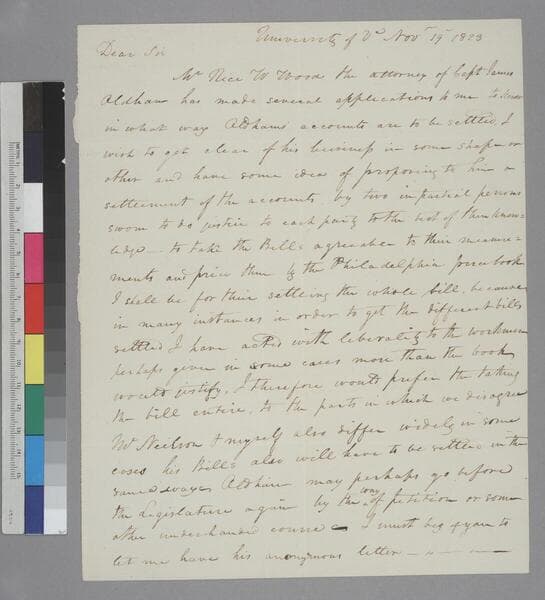 University of Va Novr 19 1823
Dear Sir
Mr Rice W Wood the attorney of Capt James
Oldham has made several applications to me to know
in what way Oldhams accounts are to be settled, I
wish to get clear of his business in some shape or
other and have some idea of proposing to him a
settlement of the accounts by two impartial persons
sworn to do justice to each party to the best of their know=
ledge — to take the Bills agreeable to their measure=
ments and price them by the Philadelphia price book
I shall be for their settling the whole bill, because
in many instances in order to get the different bills
settled I have acted with liberality to the workmen
perhaps given in some cases more than the book
would justify, I therefore would prefer the taking
the bill entire, to the parts in which we disagree
Mr Neilson & myself also differ widely in some
cases his Bills also will have to be settled in the
same way Oldham may perhaps go before
the Legislature again by the way of petition or some
other underhanded course — I must beg of you to
let me have his anonymous letter —